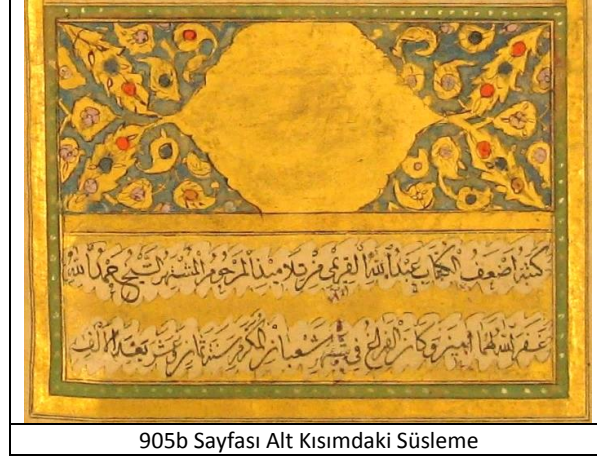 كتبه اضعف الكتاب عبد الله القريمي من تلاميذ المرحوم المشتهر الشيخ حمد الله
غفر الله لهما امين وكان الفراغ في شهر شعبان المكرم سنة ثمان وعشر بعد الالف
905b Sayfası Alt Kısımdaki Süsleme